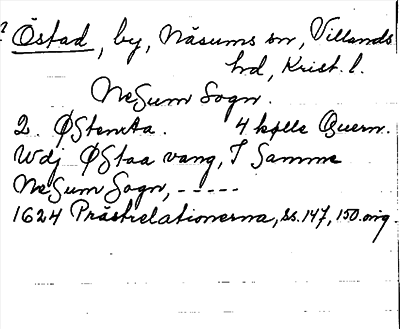 ? Östad, by, Näsums sn, Villands
hd, Krist. l.
NeSum Sogn.
2. ØStenta. 4 kølle Quern.
Wdj ØStaa vang, I Samme
NeSum Sogn, -----
1624 Prästrelationerna, ss. 147, 150. orig.